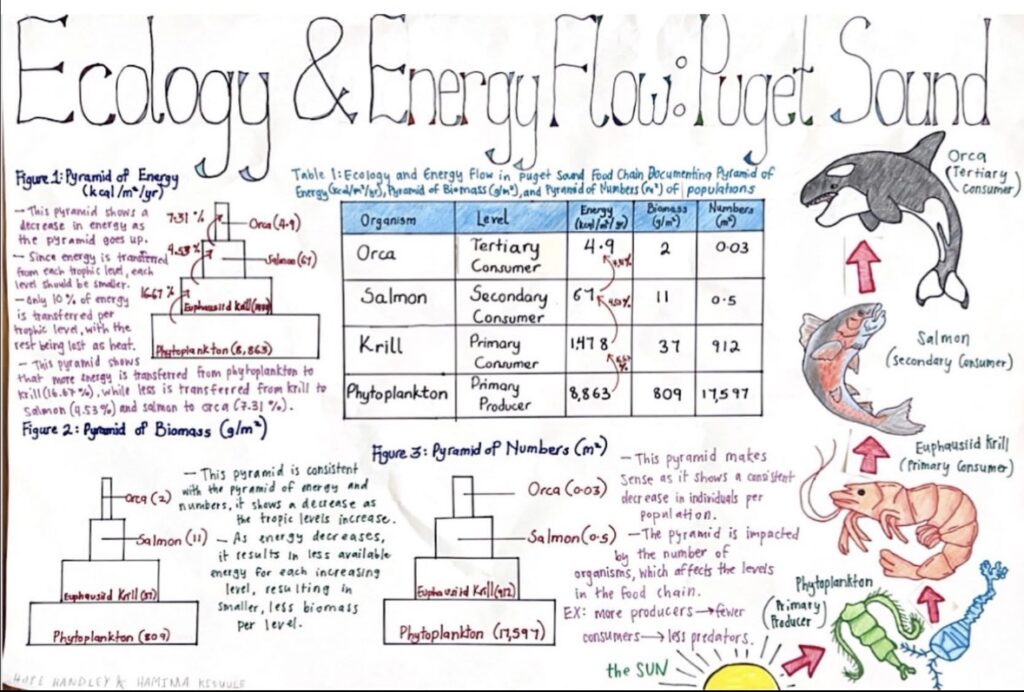 Ecology & Energy Flow: Puget Sound
Figure 1: Pyramid of Energy
(kcal/m²/yr)
- This pyramid shows a
decrease in energy as
the pyramid goes up.
- Since energy is transferred
from each trophic level, each
level should be smaller.
- Only 10% of energy
is transferred per
trophic level, with the
rest being lost as heat.
- This pyramid shows
that more energy is transferred from phytoplankton to
krill (16.67%), while less is transferred from krill to
Salmon (4.53%) and salmon to orca (7.31%).
7.31 %
Orca (4.9)
4.53 %
Salmon (67)
16.67 %
Euphausiid Krill
Phytoplankton (8,863)
Table 1: Ecology and Energy Flow in Puget Sound Food Chain Documenting Pyramid of
Energy (kcal/m²/yr), Pyramid of Biomass (g/m²), and Pyramid of Numbers (m²) of populations
Organism Level Energy (kcal/m²/yr) Biomass (g/m²) Numbers (m²)
Orca Tertiary Consumer 4.9 2 0.03
Salmon Secondary Consumer 67 11 0.5
Krill Primary Consumer 1,478 37 912
Phytoplankton Primary Producer 8,863 809 17,597
Figure 2: Pyramid of Biomass (g/m²)
Orca (2)
Salmon (11)
Euphausiid Krill (37)
Phytoplankton (809)
- This pyramid is consistent
with the pyramid of energy and
numbers, it shows a decrease as
the tropic levels increase.
- As energy decreases,
it results in less available
energy for each increasing
level, resulting in
smaller, less biomass
per level.
Figure 3: Pyramid of Numbers (m²)
Orca (0.03)
Salmon (0.5)
Euphausiid Krill (912)
Phytoplankton (17,597)
- This pyramid makes
sense as it shows a consistent
decrease in individuals per
population.
- The pyramid is impacted
by the number of
organisms, which affects the levels
in the food chain.
EX: more producers → fewer
consumers → less predators.
Orca
(Tertiary
Consumer)
Salmon
(Secondary Consumer)
Euphausiid Krill
(Primary Consumer)
Phytoplankton
(Primary
Producer)
the SUN
HANDLEY & HAMIMA